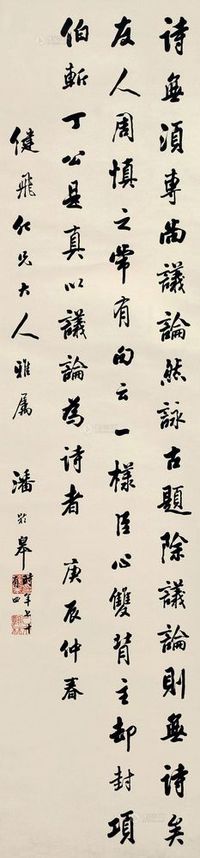 詩無須專尚議論然詠古題除議論則無詩矣
友人周慎之常有句云一樣臣心雙背主却封項
伯斬丁公是真以議論為詩者 庚辰仲春
健飛仁兄大人雅屬 潘齡皋
時年七十有四